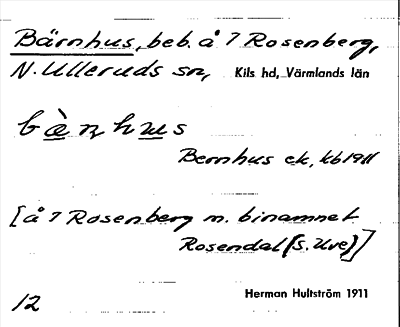 Bärnhus, beb. å 7 Rosenberg,
N. Ulleruds sn, Kils hd, Värmlands län
bæ̀ɳhʉs
Bernhus ek, kb 1911
[å 7 Rosenberg m. binamnet
Rosendal (S. Uve)]
12 Herman Hultström 1911